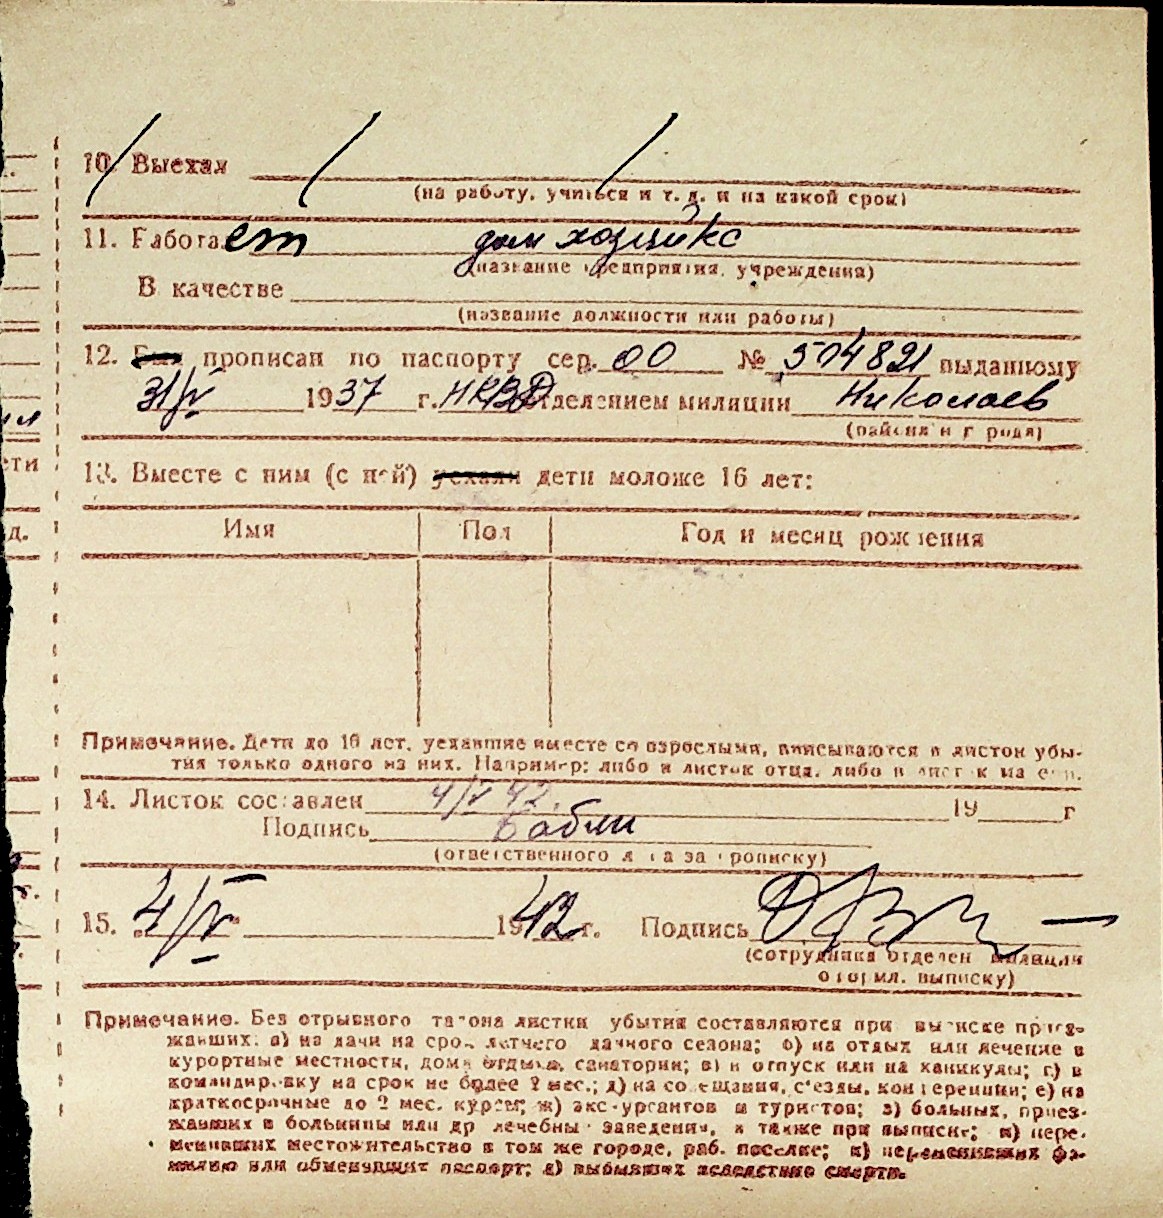 10. Выехал
(на работу, учиться и т. д. и на какой срок)
11. Работает дом хозяйка
(название предприятия, учреждения)
В качестве
(название должности или работы)
12. прописан по паспорту сер. 00 № 504821 выданному
31/V 1937 г. НКВД отделением милиции Николаев
(района и города)
13. Вместе с ним (с ней) уехали дети моложе 16 лет:
Имя Пол Год и месяц рождения
Примечание. Дети до 16 лет, уехавшие вместе со взрослыми, вписываются в листок убы-
тия только одного из них. Например: либо в листок отца, либо в листок матери.
14. Листок составлен 4/V 42. 19 г
Подпись
(ответственного лица за прописку)
15. 4/V 1942 г. Подпись
(сотрудника отделен. милиции
оформл. выписку)
Примечание. Без отрывного талона листки убытия составляются при выписке приез-
жавших: а) на дачи на срок летнего дачного сезона; б) на отдых или лечение в
курортные местности, дома отдыха, санатории; в) в отпуск или на каникулы; г) в
командировку на срок не более 2 мес.; д) на совещания, съезды, конференции; е) на
краткосрочные до 2 мес. курсы; ж) экскурсантов и туристов; з) больных, приез-
жавших в больницы или др лечебные заведения, а также при выписке; и) пере-
менивших местожительство в том же городе, раб. поселке; к) переменивших фа-
милию или обменявших паспорт; л) выбывших вследствие смерти.